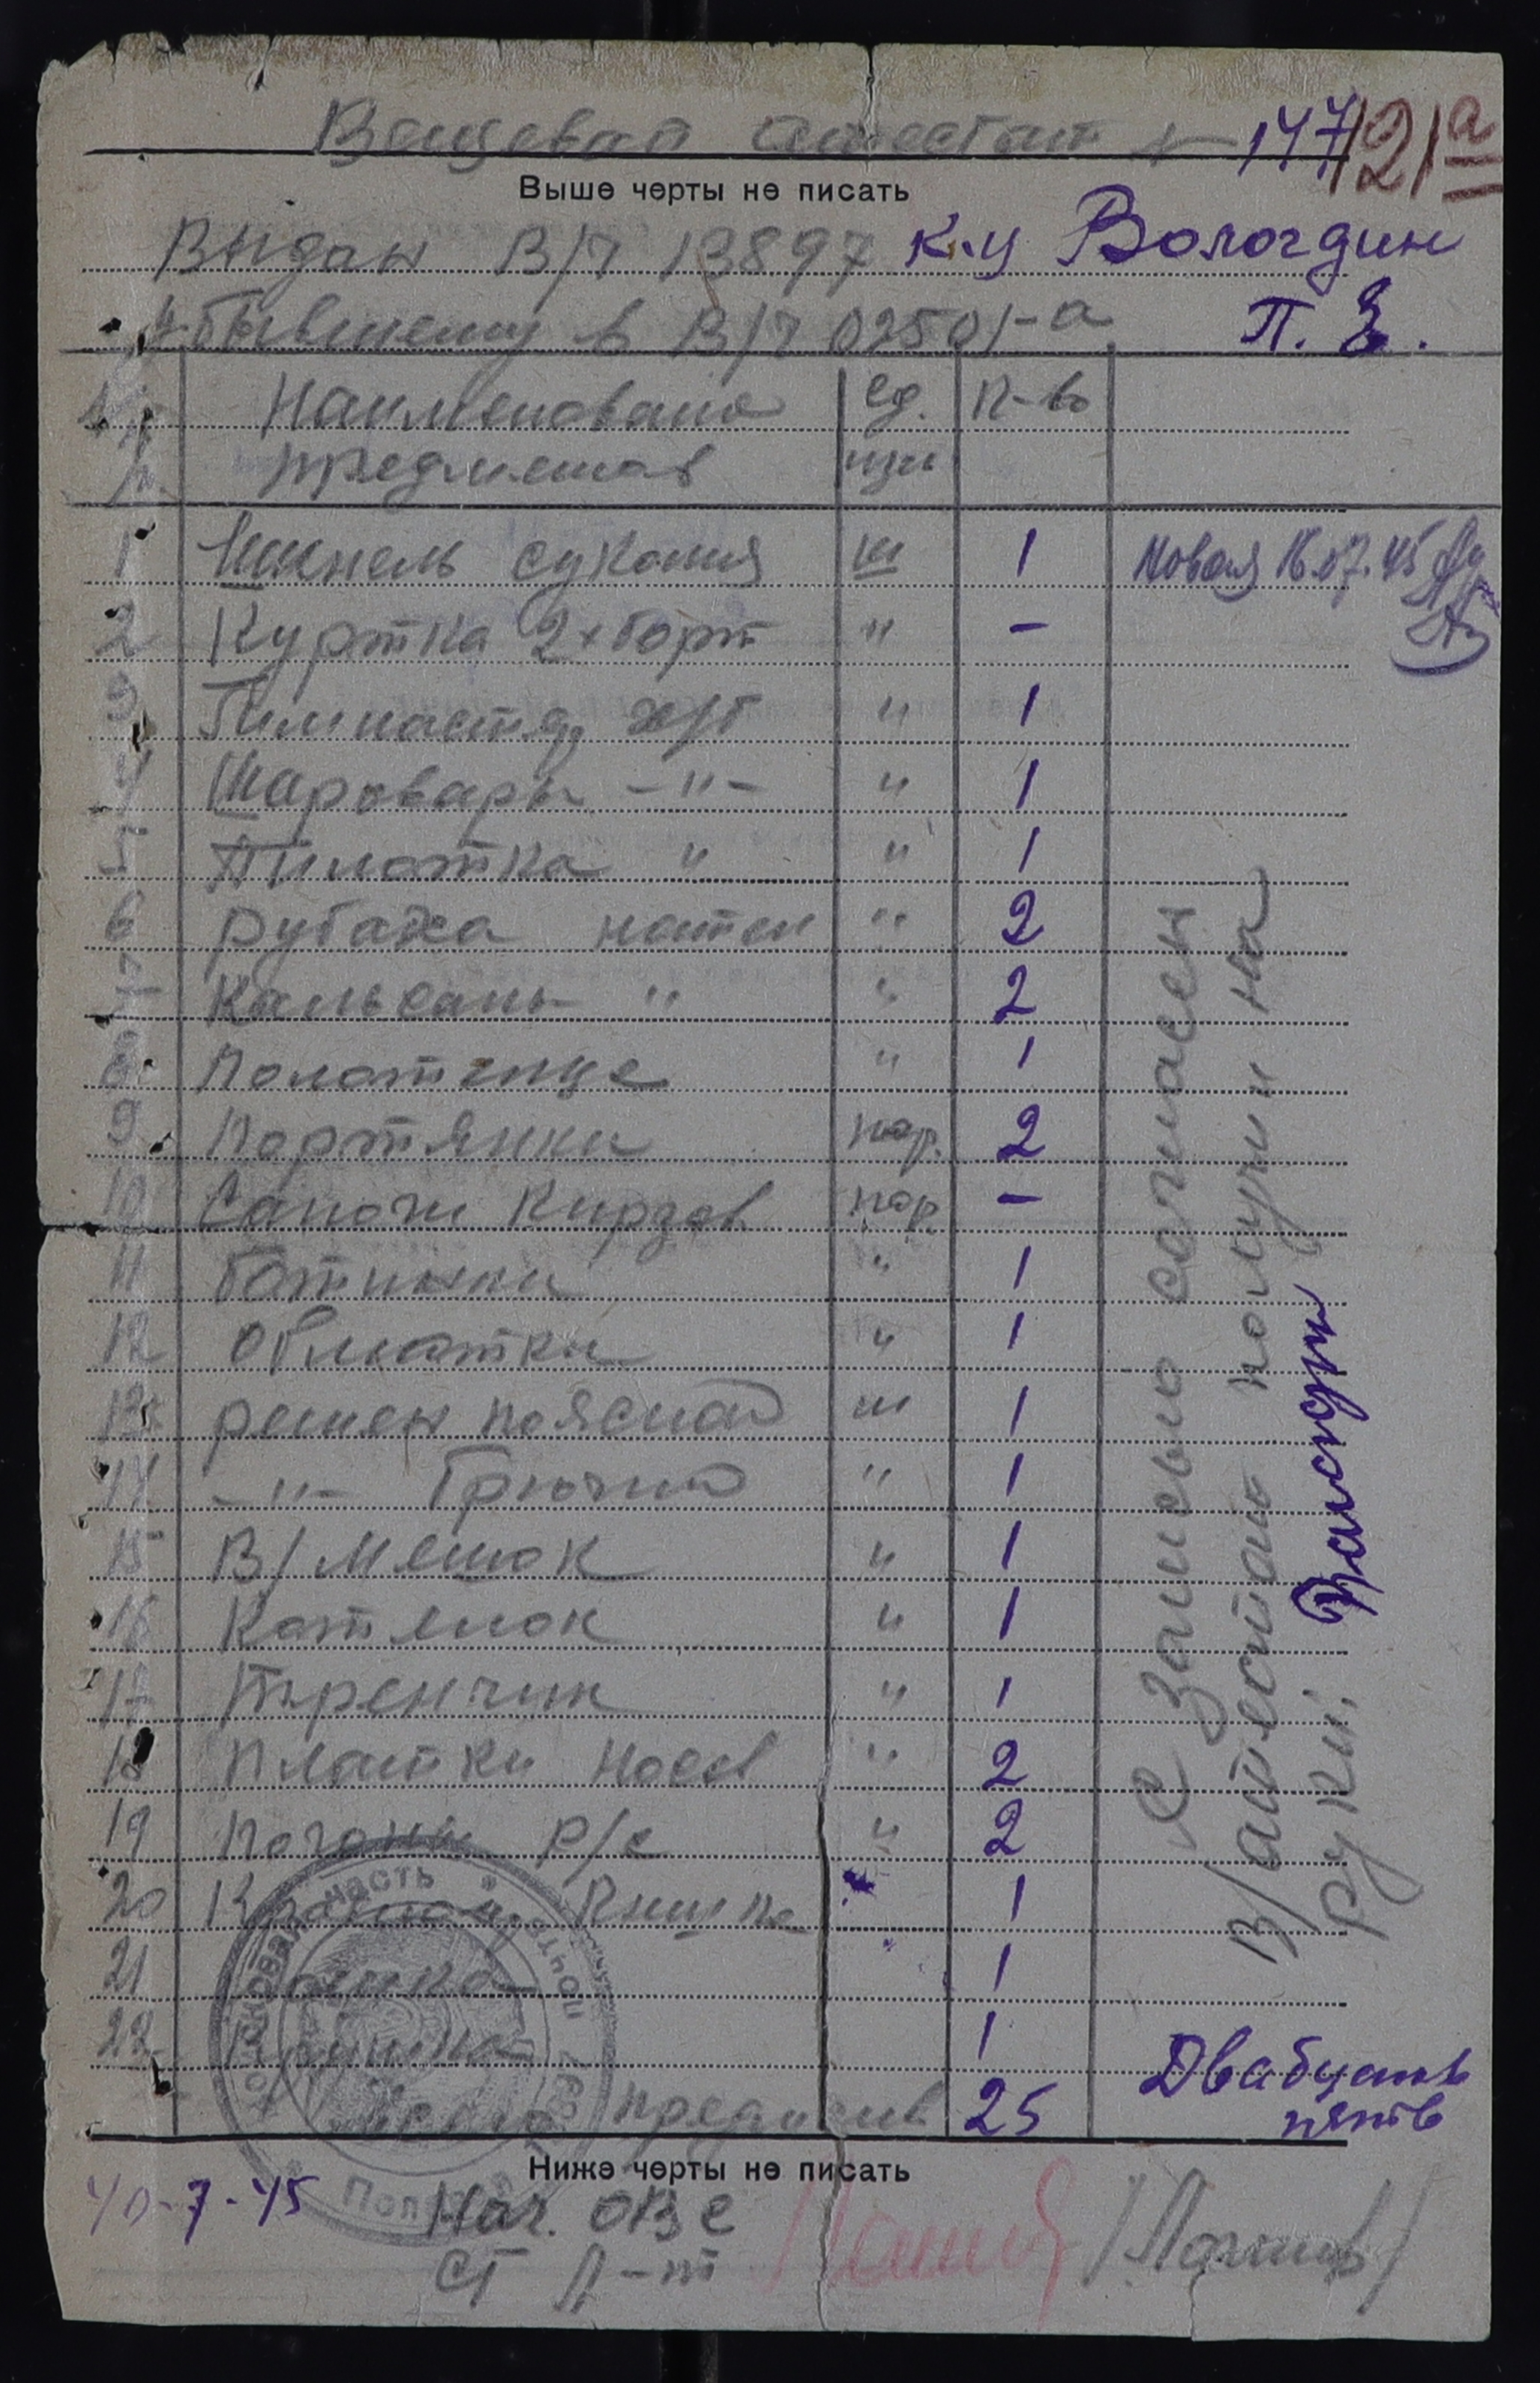 Вещевой атестат № 147
121а
Выше черты не писать
Выдан В/Ч 13897 к-ц Вологдин
убывшему в В/Ч 02501-а П. Е.
№ Наименование Ед. К-во
предметов изм
1 Шинель сукония ш 1 Новая 16.07.45
2 Куртка 2х борт " -
3 Гимнастер х/б " 1
4 Шаровары -"- " 1
5 Пилотка " " 1
6 рубаха нател " 2
7 Кальсоны " " 2
8 Полотенце " 1
9 Портянки пар. 2
10 Сапоги Кирзов пар -
11 ботинки " 1
12 Обмотки " 1
13 ремень поясной ш 1
14 -"- брючной " 1
15 В/мешок " 1
16 Котелок " 1
17 Тренчик " 1
18 Платки носов " 2
19 Погоны р/с " 2
20 Книжка 1
21 1
22 1
Всего предметов 25 Двадцать
пять
Ниже черты не писать
10-7-45 Нач. ОВС
СТ Л-т
С записью согласен
В/атестат получил на
руки:
часть